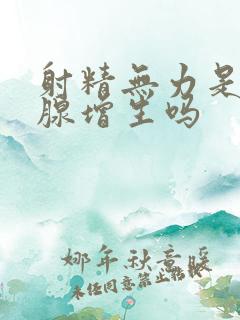 射精無力是
腺增生吗
娜年秋意暖
未经同意禁止转载